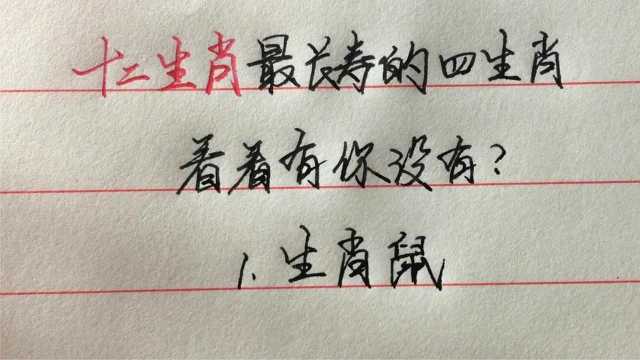 十二生肖最长寿的四生肖
看看有你没有?
1.生肖鼠